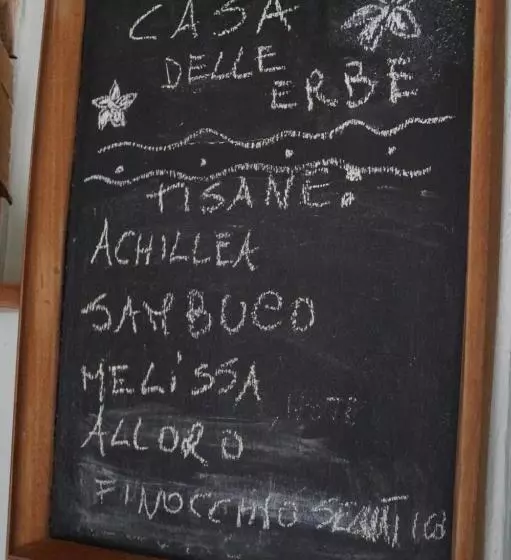 CASA
DELLE
ERBE
TISANE:
ACHILLEA
SAMBUCO
MELiSSA
ALLORO
FINOCCHIO